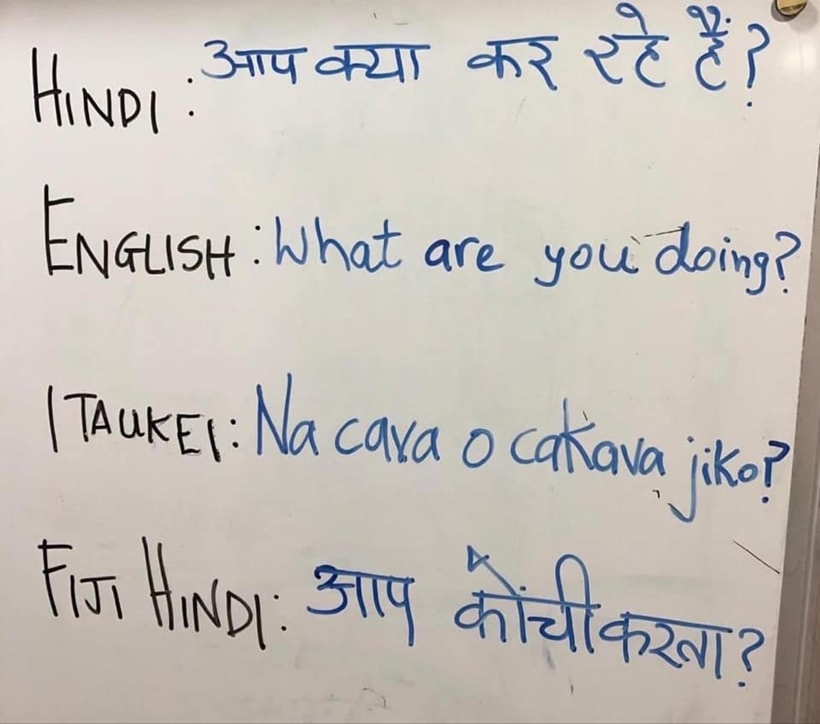 HINDI: आप क्या कर रहे हैं?
ENGLISH: What are you doing?
ITAUKEI: Na cava o cakava jiko?
FIJI HINDI: आप कोंची करता?